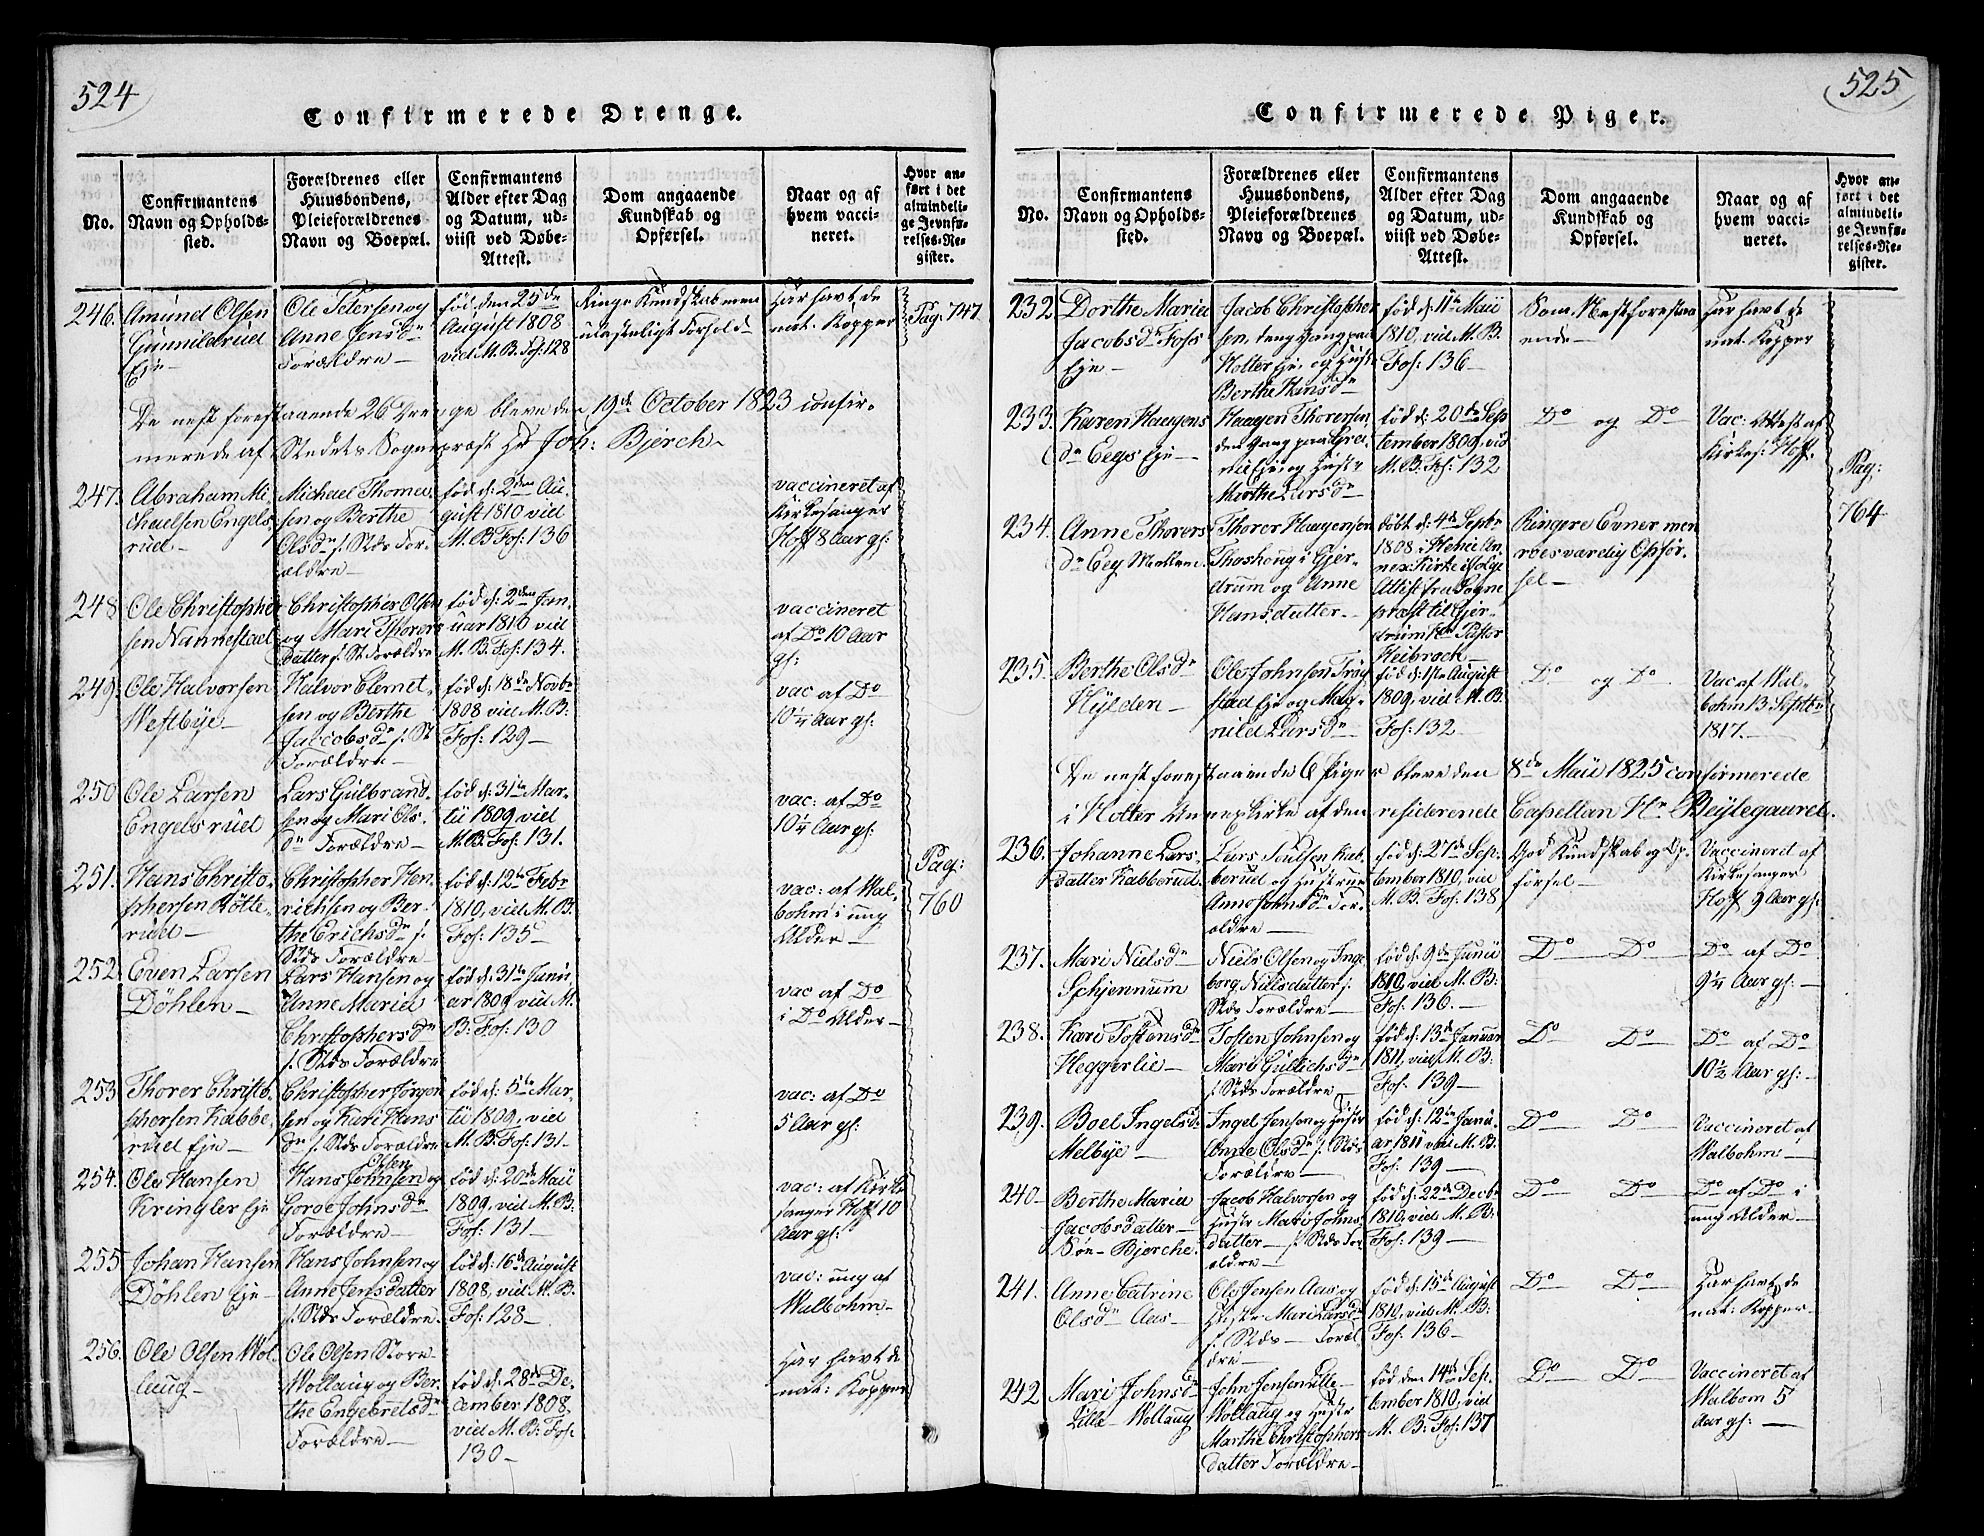 524
Confirmerede Drenge.
No.
Confirmantens
Navn og Opholds-
sted.
Forældrenes eller
Huusbondens,
Pleieforældrenes
Navn og Boepæl.
Confirmantens
Alder efter Dag
og Datum, ud-
viist ved Døbe-
Attest.
Dom angaaende
Kundskab og
Opførsel.
Naar og af
hvem vacci-
neret.
Hvor an-
ført i det
almindeli-
ge Jevnfø-
relses-Re-
gister.
246.
Amund Olsen
Gunnildrud
Eje
Ole Petersen og
Anne Jensdr
Forældre
fød den 25de
August 1808
vid M. B. Fol: 128
Ringe Kundskab men
ulasteligt Forhold
Har havt de
nat. Kopper
Pag. 747
De nest forestaaende 26 Drenge bleve den 19de October 1823 confir-
merede af Stedets Sognepræst Hr Joh: Bjerch
247.
Abraham Mi-
chaelsen Engels-
rud
Michael Thomes-
sen og Berthe
Olsdr f. Stds For-
ældre
fød d: 2den Au-
gust 1810 vid
M. B Fol: 136
vaccineret af
Kirkesanger
Hoff 8 Aar gl:
248
Ole Christopher-
sen Nannestad
Christopher Olsen
og Mari Thorers
datter f. St. Forældre
fød d: 2den Jan-
uar 1810 vid
M. B. Fol: 134.
vaccineret
af Do 10 Aar
gl:
249
Ole Halvorsen
Westbye
Halvor Clemet-
sen og Berthe
Jaccobsdr f. St
Forældre
fød d: 18de Novbr
1808 vid M. B:
Fol: 129
vac af Do
10¼ Aar gl:
250
Ole Larsen
Engelsrud
Lars Gulbrand-
sen og Mari Ols-
dr Forældre
fød d: 31te Mar-
tii 1809 vid
M. B. Fol: 131.
vac: af Do
10¼ Aar gl:
251.
Hans Christo-
phersen Rötte-
rud
Christopher Hen-
richsen og Ber-
the Erichsdr f.
Stds Forældre
fød d: 12te Febr
1810, vid M. B.
Fol: 135
vac: af Wal-
bohm i ung
Alder
Pag:
760
252
Even Larsen
Döhlen
Lars Hansen og
Anne Maria
Christophersdr
f. Stds Forældre
fød d: 31te Janu-
ar 1809, vid M.
B: Fol: 130
vac af Do
i Do Alder
253
Thorer Christo-
phersen Kabbe-
rud Eje
Christopher Jörgen
sen og Kari Hans
dr f. Stds Forældre
fød d: 5te Mar-
tii 1809, vid
M. B. Fol: 131
vac: af Do
5 Aar gl:
254.
Ole Hansen
Kringler Eje
Olsen
Hans Johnsen og
Goroe Johnsdr
Forældre
fød d: 20de Maii
1809, vid M. B:
Fol: 131
vac: af Kirke
sanger Hoff 10
Aar gl:
255
Johan Hansen
Döhlen Eje
Hans Johnsen og
Anne Jensdatter
f. Stds Forældre.
fød d: 16de August
1808, vid M. B.
Fol: 128
vac: ung af
Walbohm
256.
Ole Olsen Wol-
laug
Ole Olsen Store
Wollaug og Ber-
the Engebretsdr
Forældre
fød d: 28de De-
cember 1808,
vid M. B: Fol:
130
Har havt de
nat: Kopper
525
Confirmerede Piger.
No.
Confirmantens
Navn og Opholds-
sted.
Forældrenes eller
Huusbondens,
Pleieforældrenes
Navn og Boepæl.
Confirmantens
Alder efter Dag
og Datum, ud-
viist ved Døbe-
Attest.
Dom angaaende
Kundskab og
Opførsel.
Naar og af
hvem vacci-
neret.
Hvor an-
ført i det
almindeli-
ge Jevnfø-
relses-Re-
gister.
232
Dorthe Maria
Jacobsdr Foss
Eje
Jacob Christopher
sen, deng Gang paa
Holter Eje, og Hustr
Berthe Hansdr
fød d: 11te Maii
1810, vid M. B.
Fol: 136
Som Nestforestaa
ende
Har havt de
nat. Kopper
233.
Karen Haagens
dr Eegs Eje
Haagen Thorersen
den Gang paa
Eje og Hustr
Marthe Larsdr
fød d: 20de Sep
tember 1809, vid
M. B. Fol: 132
Do og Do
Vac: Attest af
Kirkes: Hoff.
Pag:
764
234.
Anne Thorers
dr Eeg Mellem
Thorer Haagensen
i Gjer-
drum og Anne
Hansdatter
døbt d: 4de Septr
1808 i An-
nex Kirke
Attest fra Sogne
præst til Gjer-
drum Hr Pastor
Heibroch
Ringere Evner men
roesværdig Opför-
sel
235.
Berthe Olsdr
Hylden
Ole Johnsen Trög-
stad Eje og Mag-
nild Larsdr
fød d: 1ste August
1809, vid M. B.
Fol: 132
Do og Do
Vac af Wal-
bohm 13 Septbr
1817.
De nest forestaaende 6 Piger bleve den 8de Maii 1825 confirmerede
i Holter Annexkirke af den residerende Capellan Hr. Beylegaard.
236.
Johanne Lars-
datter Kabberud
Lars Poulsen Kab-
berud og Hustrue
For-
ældre
fød d: 27de Sep-
tember 1810, vid
M. B. Fol: 138
God Kundskab og Op-
försel
Vaccineret af
Kirkesanger
Hoff 9 Aar gl:
237.
Mari Nielsdr
Schjennum
Niels Olsen og Inge
borg Nielsdatter f:
Stds Forældre
fød d: 9de Junii
1810, vid M. B:
Fol: 136.
Do Do
Do af Do
9¼ Aar gl:
238.
Kari Tostensdr
Heggerlie
Tosten Johnsen og
Mari Gullichsdr
f. Stds Forældre
fød d: 13de Januar
1811, vid M. B:
Fol: 139
Do Do
Do af Do
10½ Aar gl:
239.
Boel Ingelsd
Melbye
Ingel Jensen og Hustr
Anne Olsdr f. Stds
Forældre
fød d: 12te Janu-
ar 1811 vid M. B:
Fol: 139
Do Do
Vaccineret af
Walbohm
240
Berthe Maria
Jacobsdatter
Søn-Bjerche
Jacob Halvorsen og
Hustr Mari Johns-
datter f. Stds For
ældre
fød d: 22de Decbr
1810, vid M. B:
Fol: 139
Do Do
Do af Do i
ung Alder
241.
Anne Catrine
Olsdr Aas
Ole Jensen Aas og
Hustr Mari Larsdr
f. Stds Foræl-
dre
fød d: 15de August
1810, vid M. B:
Fol: 136
Do Do
Har havt de
nat: Kopper
242
Mari Johnsdr
Lille Wollaug
John Jensen Lille
Wollaug og Hustr
Marthe Christophers
datter Forældre
fød den 14de Sep-
tember 1810, vid
M. B: Fol: 137
Do Do
Vaccineret af
Walbom 5
Aar gl: